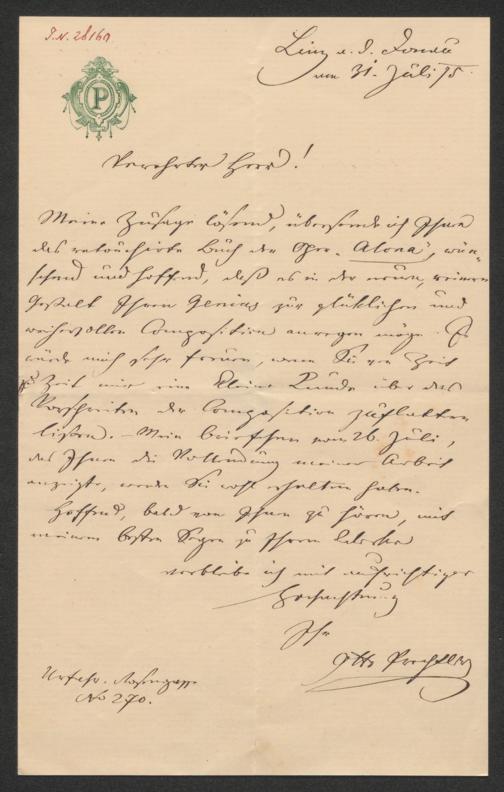 I.N. 28160
P
Linz a. d. Donau
am 31. Juli 75.
Verehrter Herr!
Meine Zusage lösend, übersende ich Ihnen
das retouchirte Buch der Oper „Alona“, wün-
schend und hoffend, daß es in der neuen, reinen
Gestalt Ihren Genius zur glücklichen und
weihevollen Composition anregen möge. Es
würde mich sehr freuen, wenn Sie von Zeit
zu Zeit mir eine kleine Kunde über das
Vorschreiten der Composition zuflattern
ließen. – Mein Briefchen vom 26. Juli,
das Ihnen die Vollendung meiner Arbeit
anzeigte, werden Sie wohl erhalten haben.
Hoffend, bald von Ihnen zu hören, mit
meinem besten Segen zu Ihrem Werke
verbleibe ich mit aufrichtiger
Hochachtung
Ihr
Otto Prechtler
Urfahr. Rosengasse
No 270.